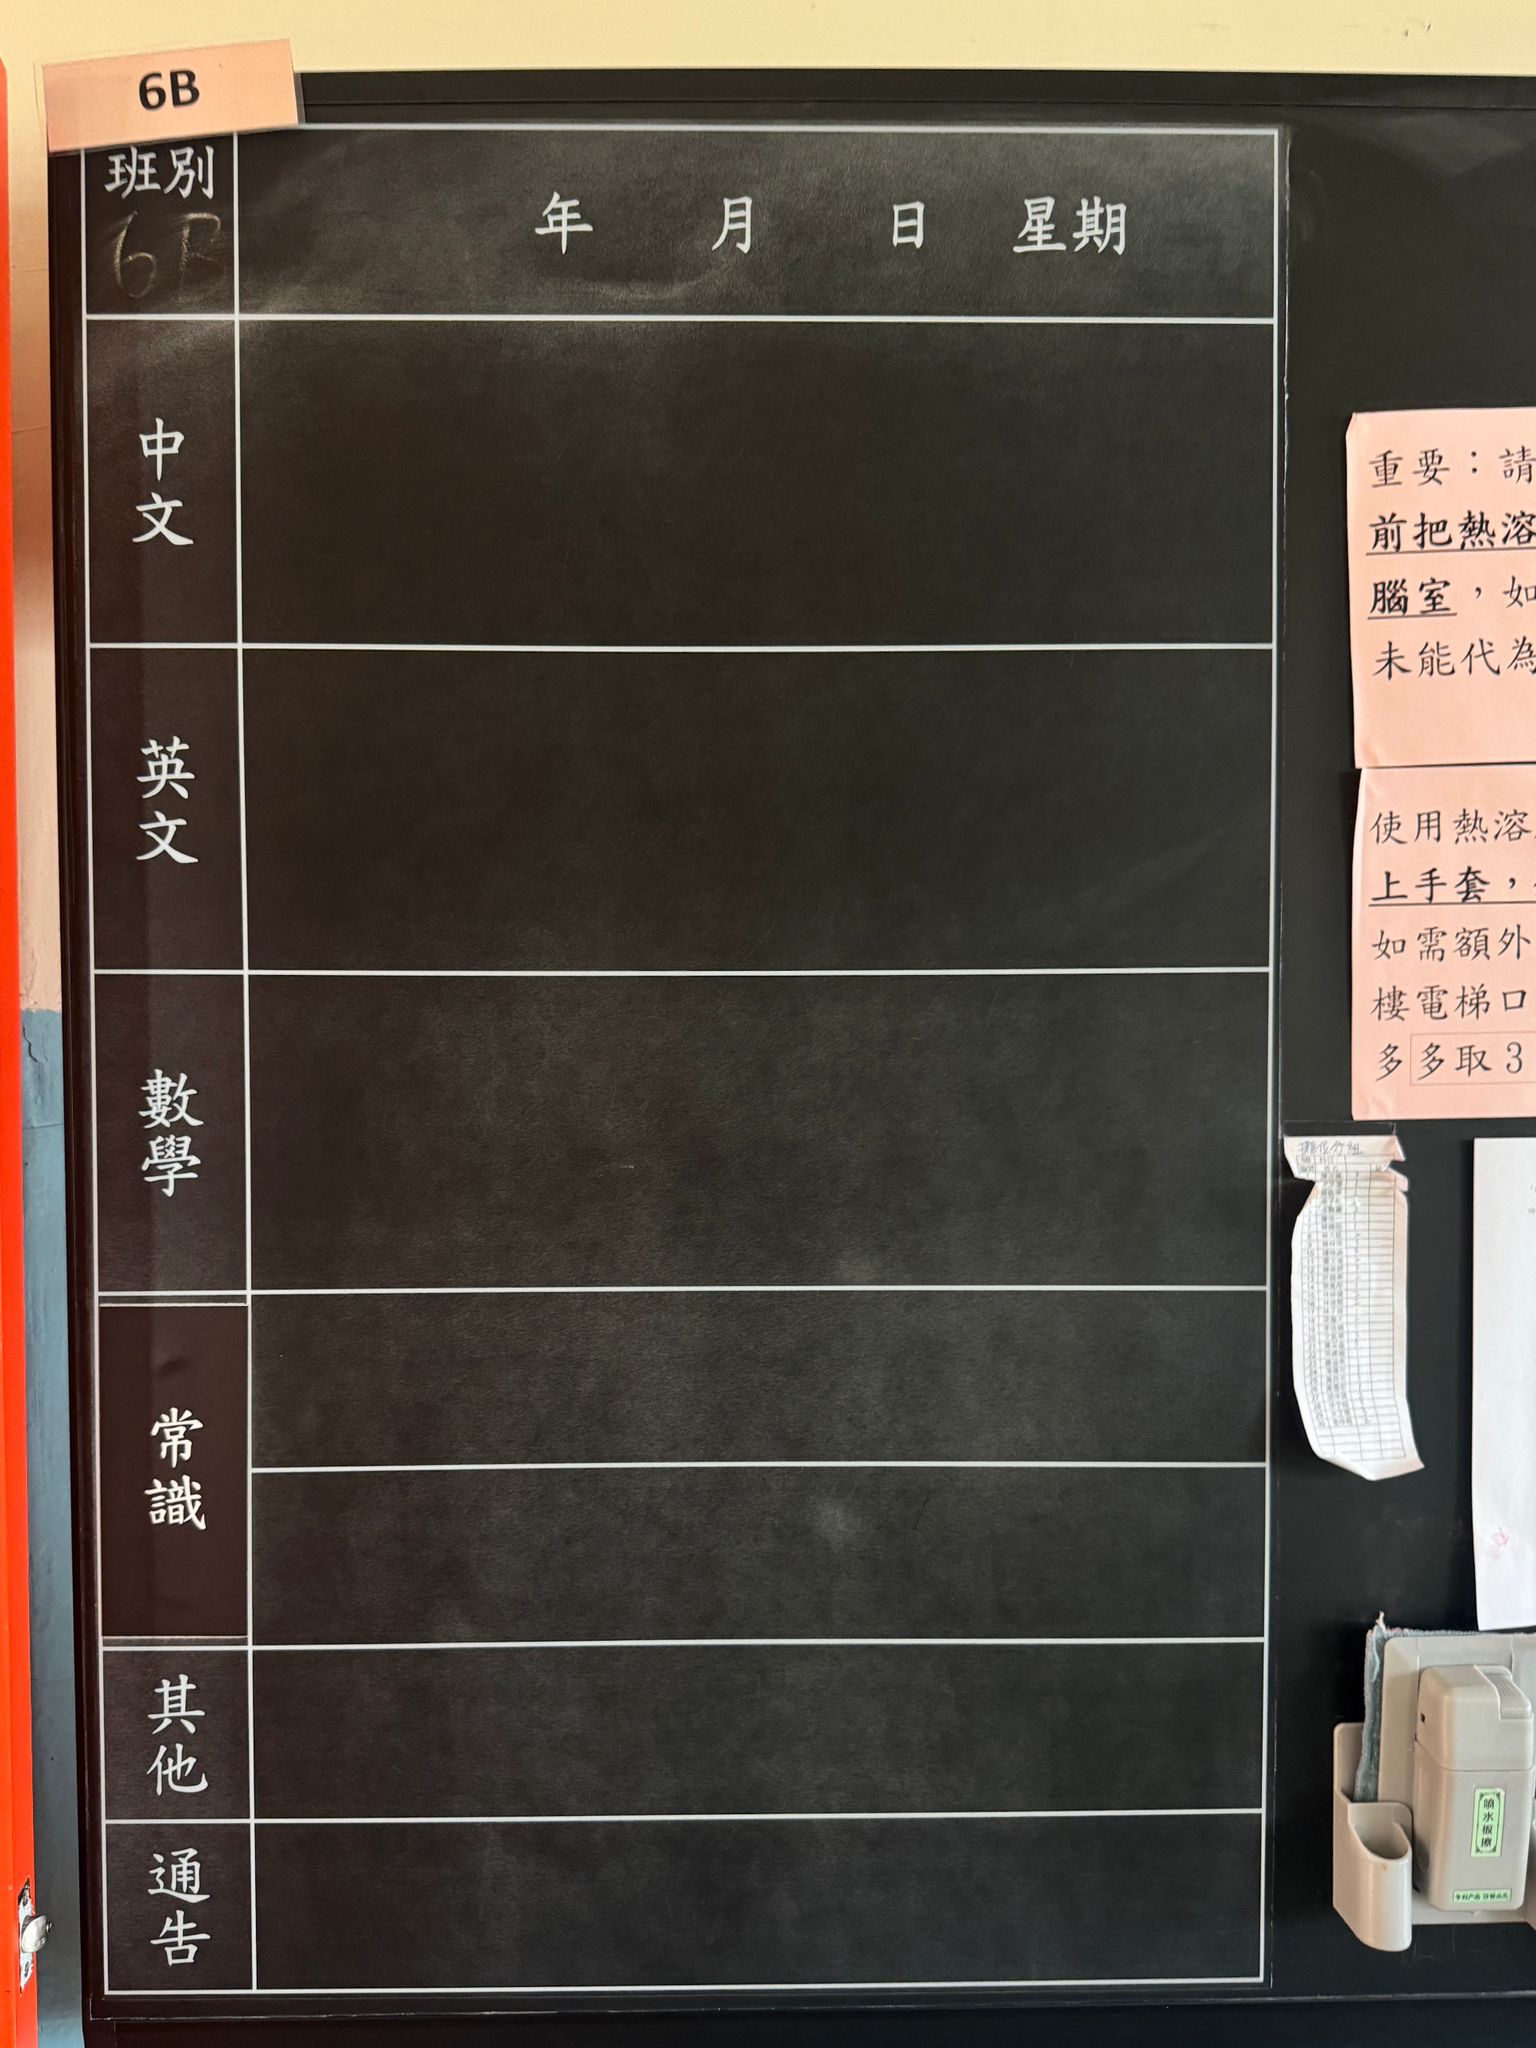 6B
班別
6B
年 月 日 星期
中文
英文
數學
常識
其他
通告
重要：請
前把熱溶
腦室，如
未能代為
使用熱溶
上手套，
如需額外
樓電梯口
多多取3
攤位分組
噴水板擦